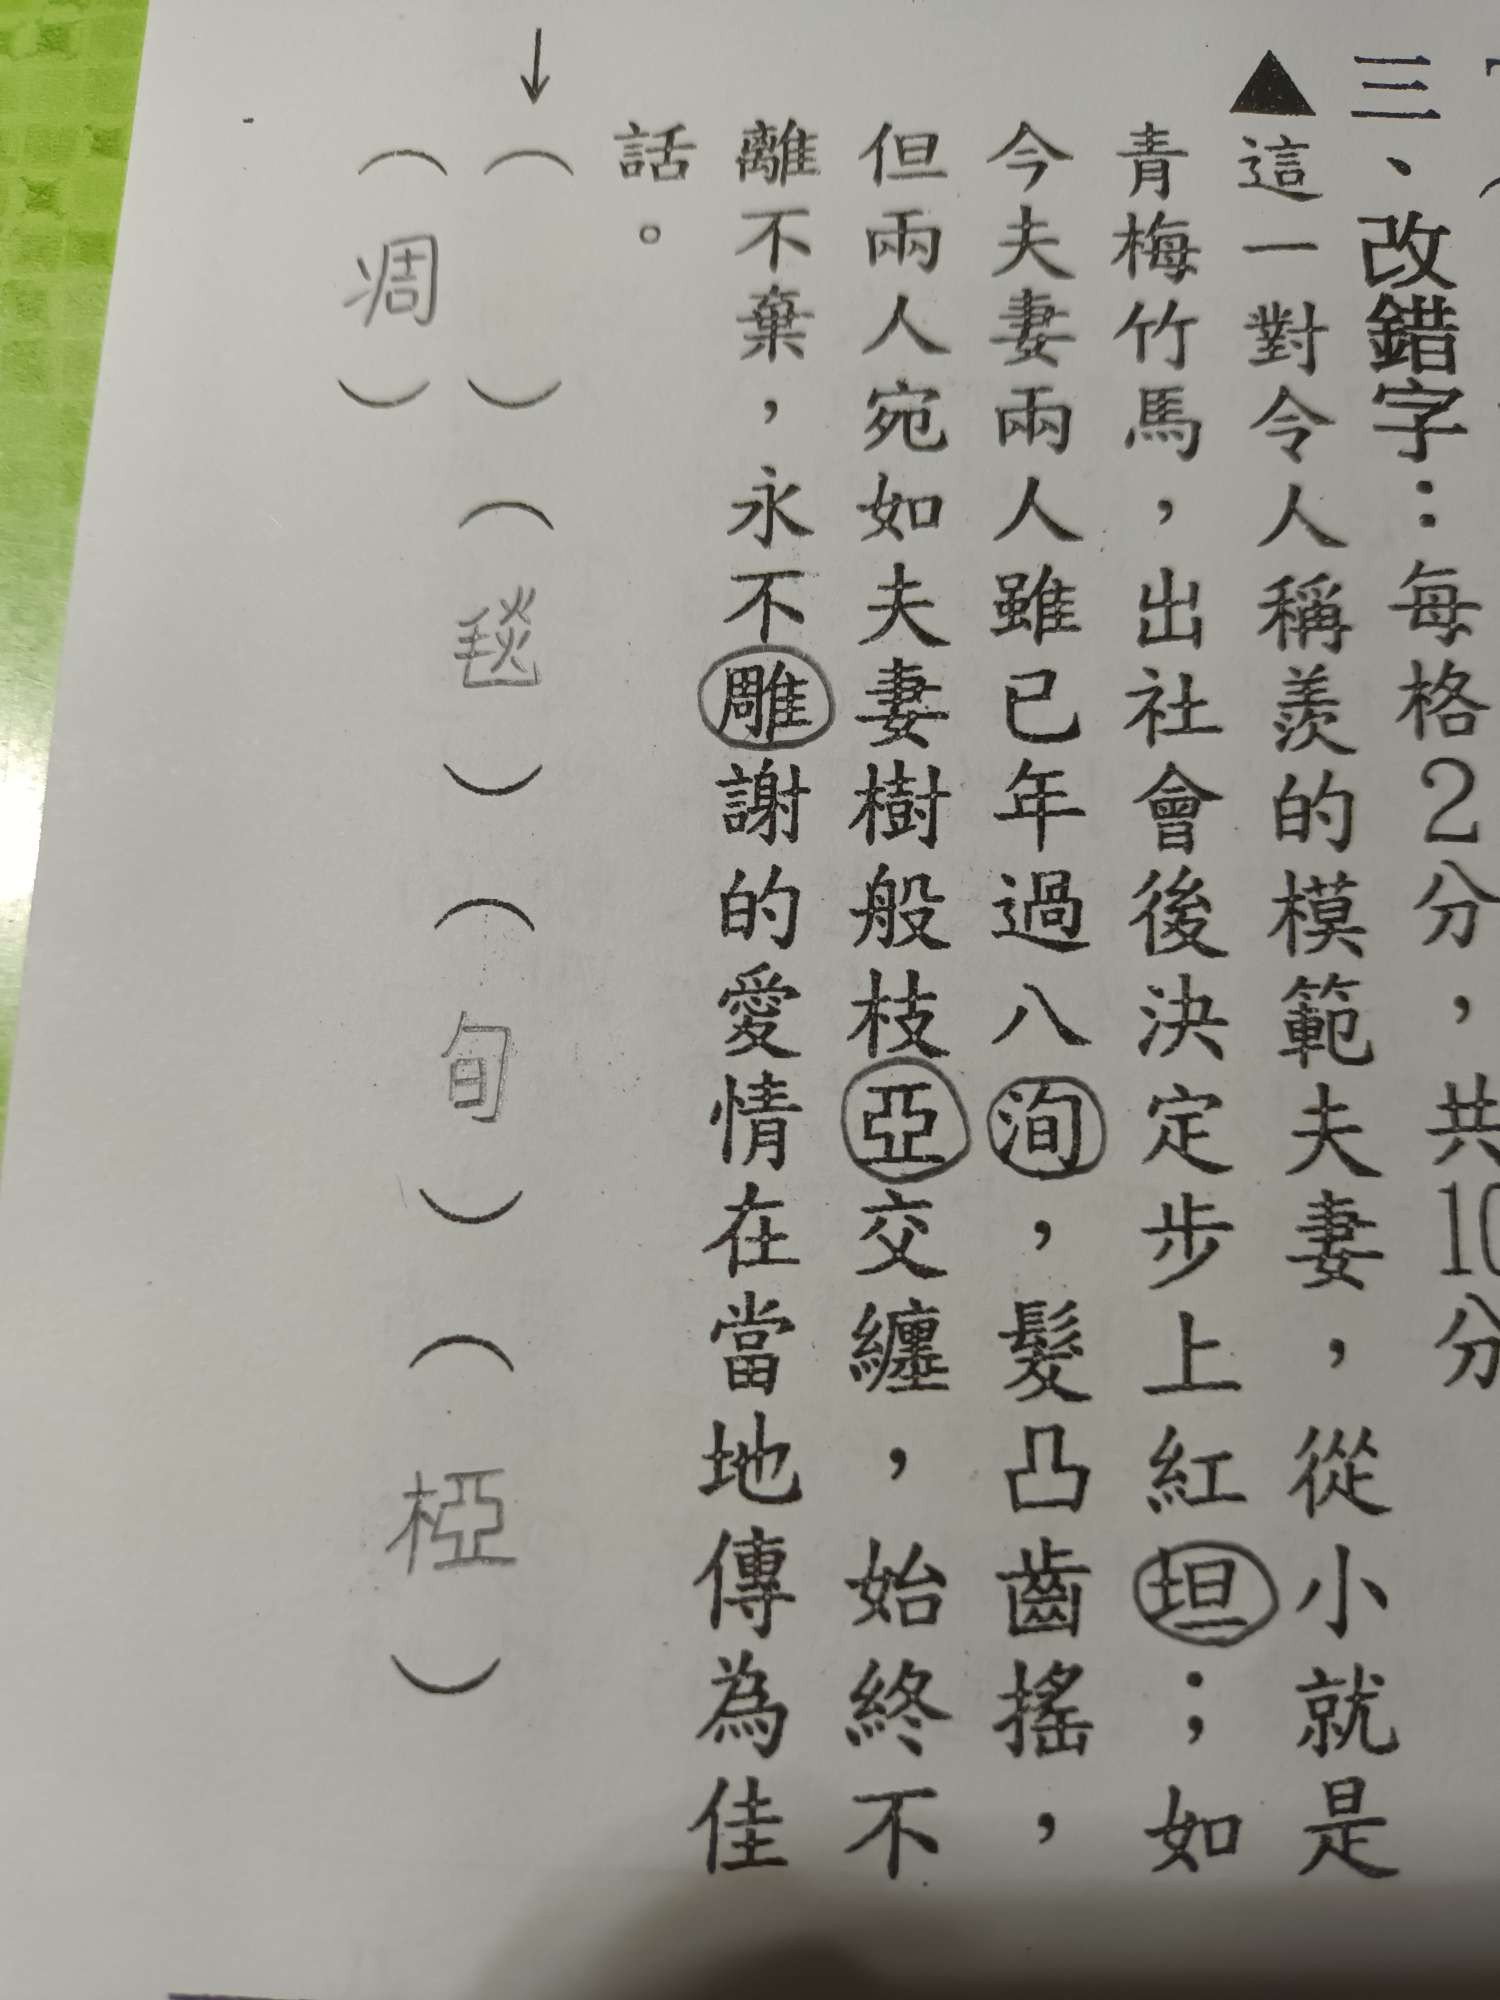 三、改錯字：每格2分，共10分
▲這一對令人稱羨的模範夫妻，從小就是
青梅竹馬，出社會後決定步上紅坦；如
今夫妻兩人雖已年過八洵，髮凸齒搖，
但兩人宛如夫妻樹般枝亞交纏，始終不
離不棄，永不雕謝的愛情在當地傳為佳
話。
↓（　）（毯）（旬）（椏）
（凋）